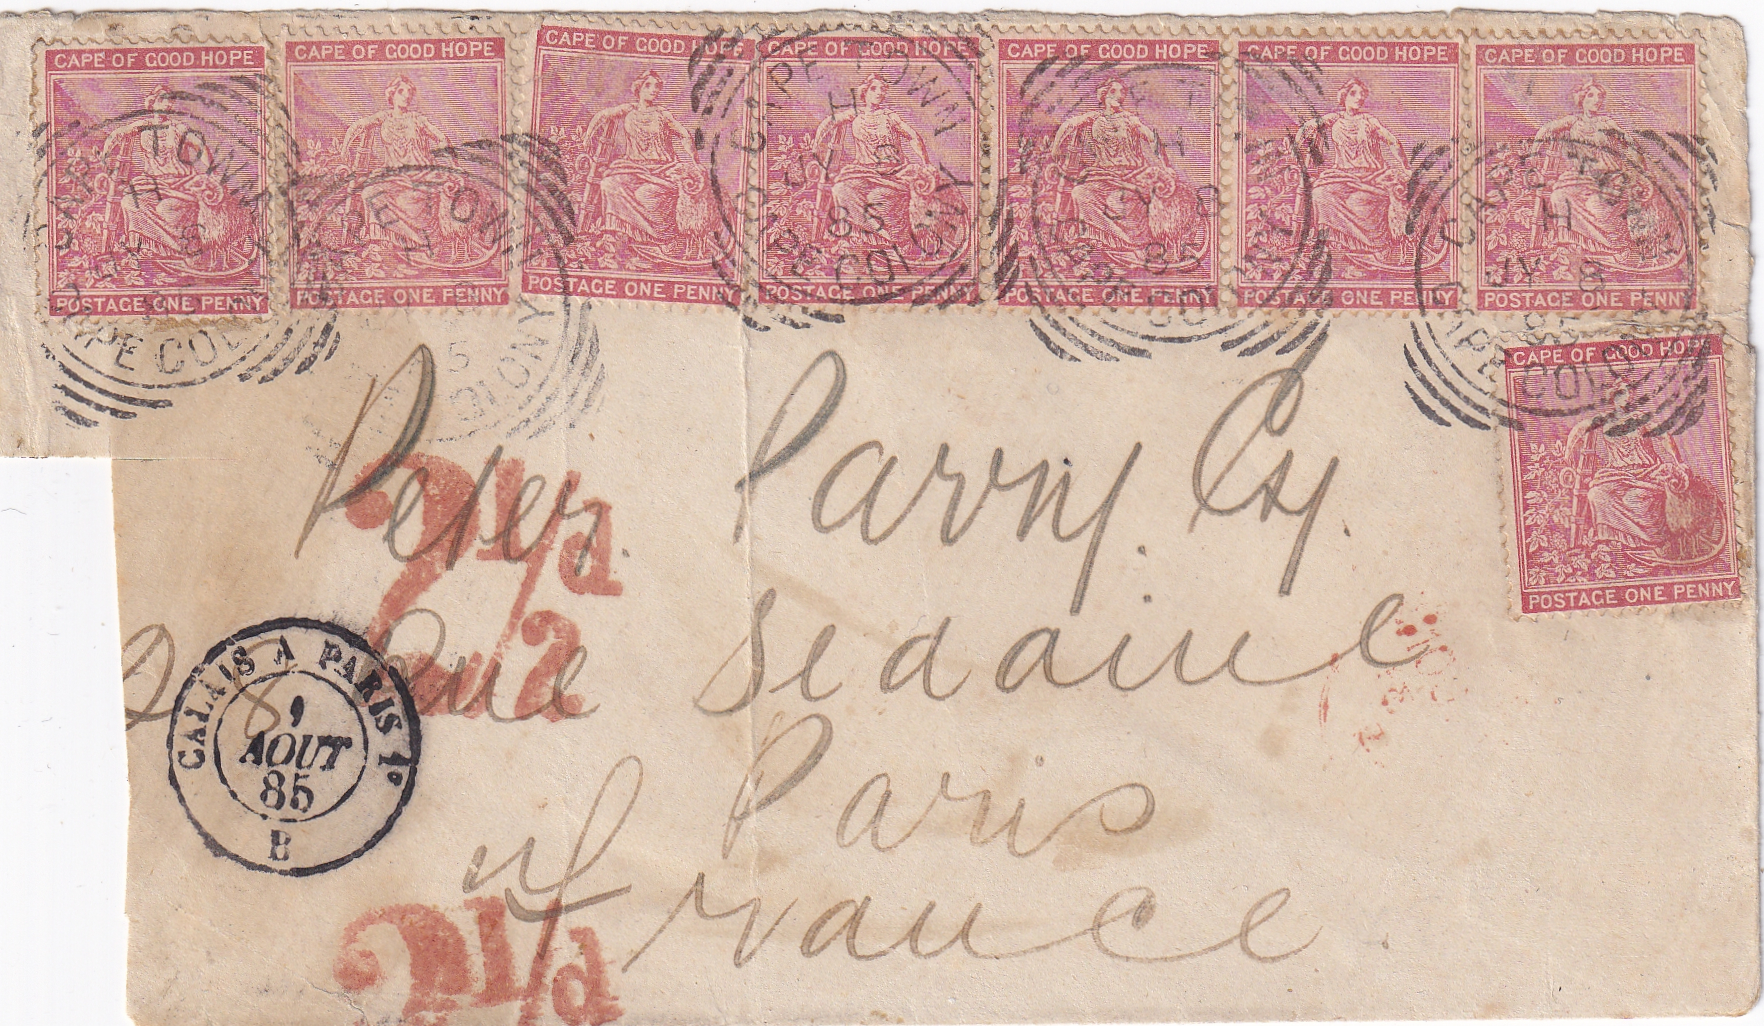 CAPE OF GOOD HOPE
POSTAGE ONE PENNY
CAPE OF GOOD HOPE
POSTAGE ONE PENNY
CAPE OF GOOD HOPE
POSTAGE ONE PENNY
CAPE OF GOOD HOPE
POSTAGE ONE PENNY
CAPE OF GOOD HOPE
POSTAGE ONE PENNY
CAPE OF GOOD HOPE
POSTAGE ONE PENNY
CAPE OF GOOD HOPE
POSTAGE ONE PENNY
CAPE OF GOOD HOPE
POSTAGE ONE PENNY
CAPE TOWN
H
JY 8
85
CAPE COLONY
Peter Parry Esq.
28 Rue Sedaine
Paris
France.
2 1/2d
2 1/d
CALAIS A PARIS 1°
9
AOUT
85
B